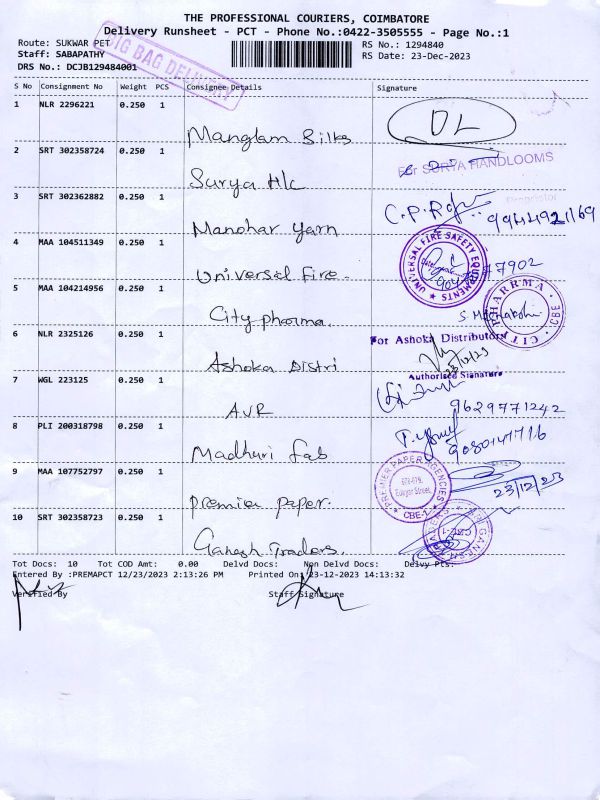 THE PROFESSIONAL COURIERS, COIMBATORE
Delivery Runsheet - PCT - Phone No.:0422-3505555 - Page No.:1
Route: SUKWAR PET
RS No.: 1294840
Staff: SABAPATHY
RS Date: 23-Dec-2023
DRS No.: DCJB129484001
BIG BAG DELIVERY
S No Consignment No Weight PCS Consignee Details Signature
1 NLR 2296221 0.250 1 Manglam Silks DL
2 SRT 302358724 0.250 1 Surya H/c For SURYA HANDLOOMS
Proprietor
3 SRT 302362882 0.250 1 Manohar yarn 9944921169
4 MAA 104511349 0.250 1 Universal fire. UNIVERSAL FIRE SAFETY EQUIPMENTS
5 MAA 104214956 0.250 1 City pharma. CITY PHARRMA CBE
6 NLR 2325126 0.250 1 Ashoka Distri For Ashoka Distributors
23/12/23
Authorised Signature
7 WGL 223125 0.250 1 AVR 9629771242
8 PLI 200318798 0.250 1 Madhuri fab 9080141716
9 MAA 107752797 0.250 1 premier paper. PREMIER PAPER AGENCIES CBE-1
23/12/23
10 SRT 302358723 0.250 1 Ganesh Traders.
Tot Docs: 10 Tot COD Amt: 0.00 Delvd Docs: Non Delvd Docs: Delvy Pts:
Entered By :PREMAPCT 12/23/2023 2:13:26 PM Printed On: 23-12-2023 14:13:32
Verified By Staff Signature